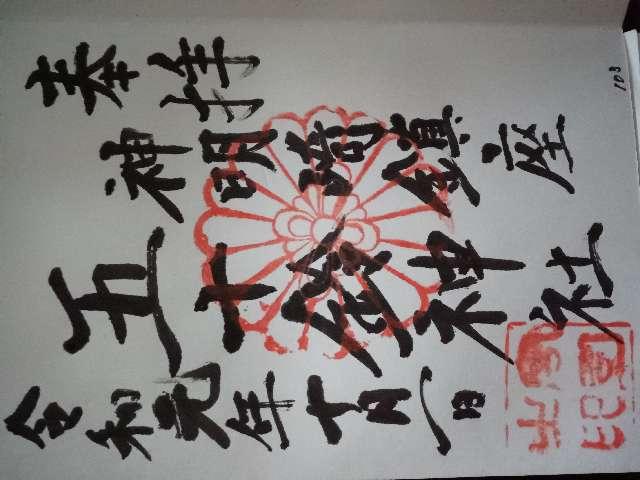 奉拝
神明崎鎮座
五十鈴神社
令和元年十月一日
103